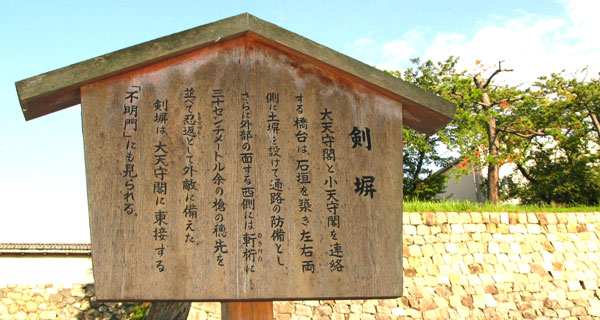 剣塀
大天守閣と小天守閣を連絡
する橋台は石垣を築き左右両
側に土塀を設けて通路の防備とし
さらに外部の面する西側には軒桁に
のきげた
三十センチメートル余の槍の穂先を
並べて忍返として外敵に備えた
剣塀は大天守閣に東接する
「不明門」にも見られる。